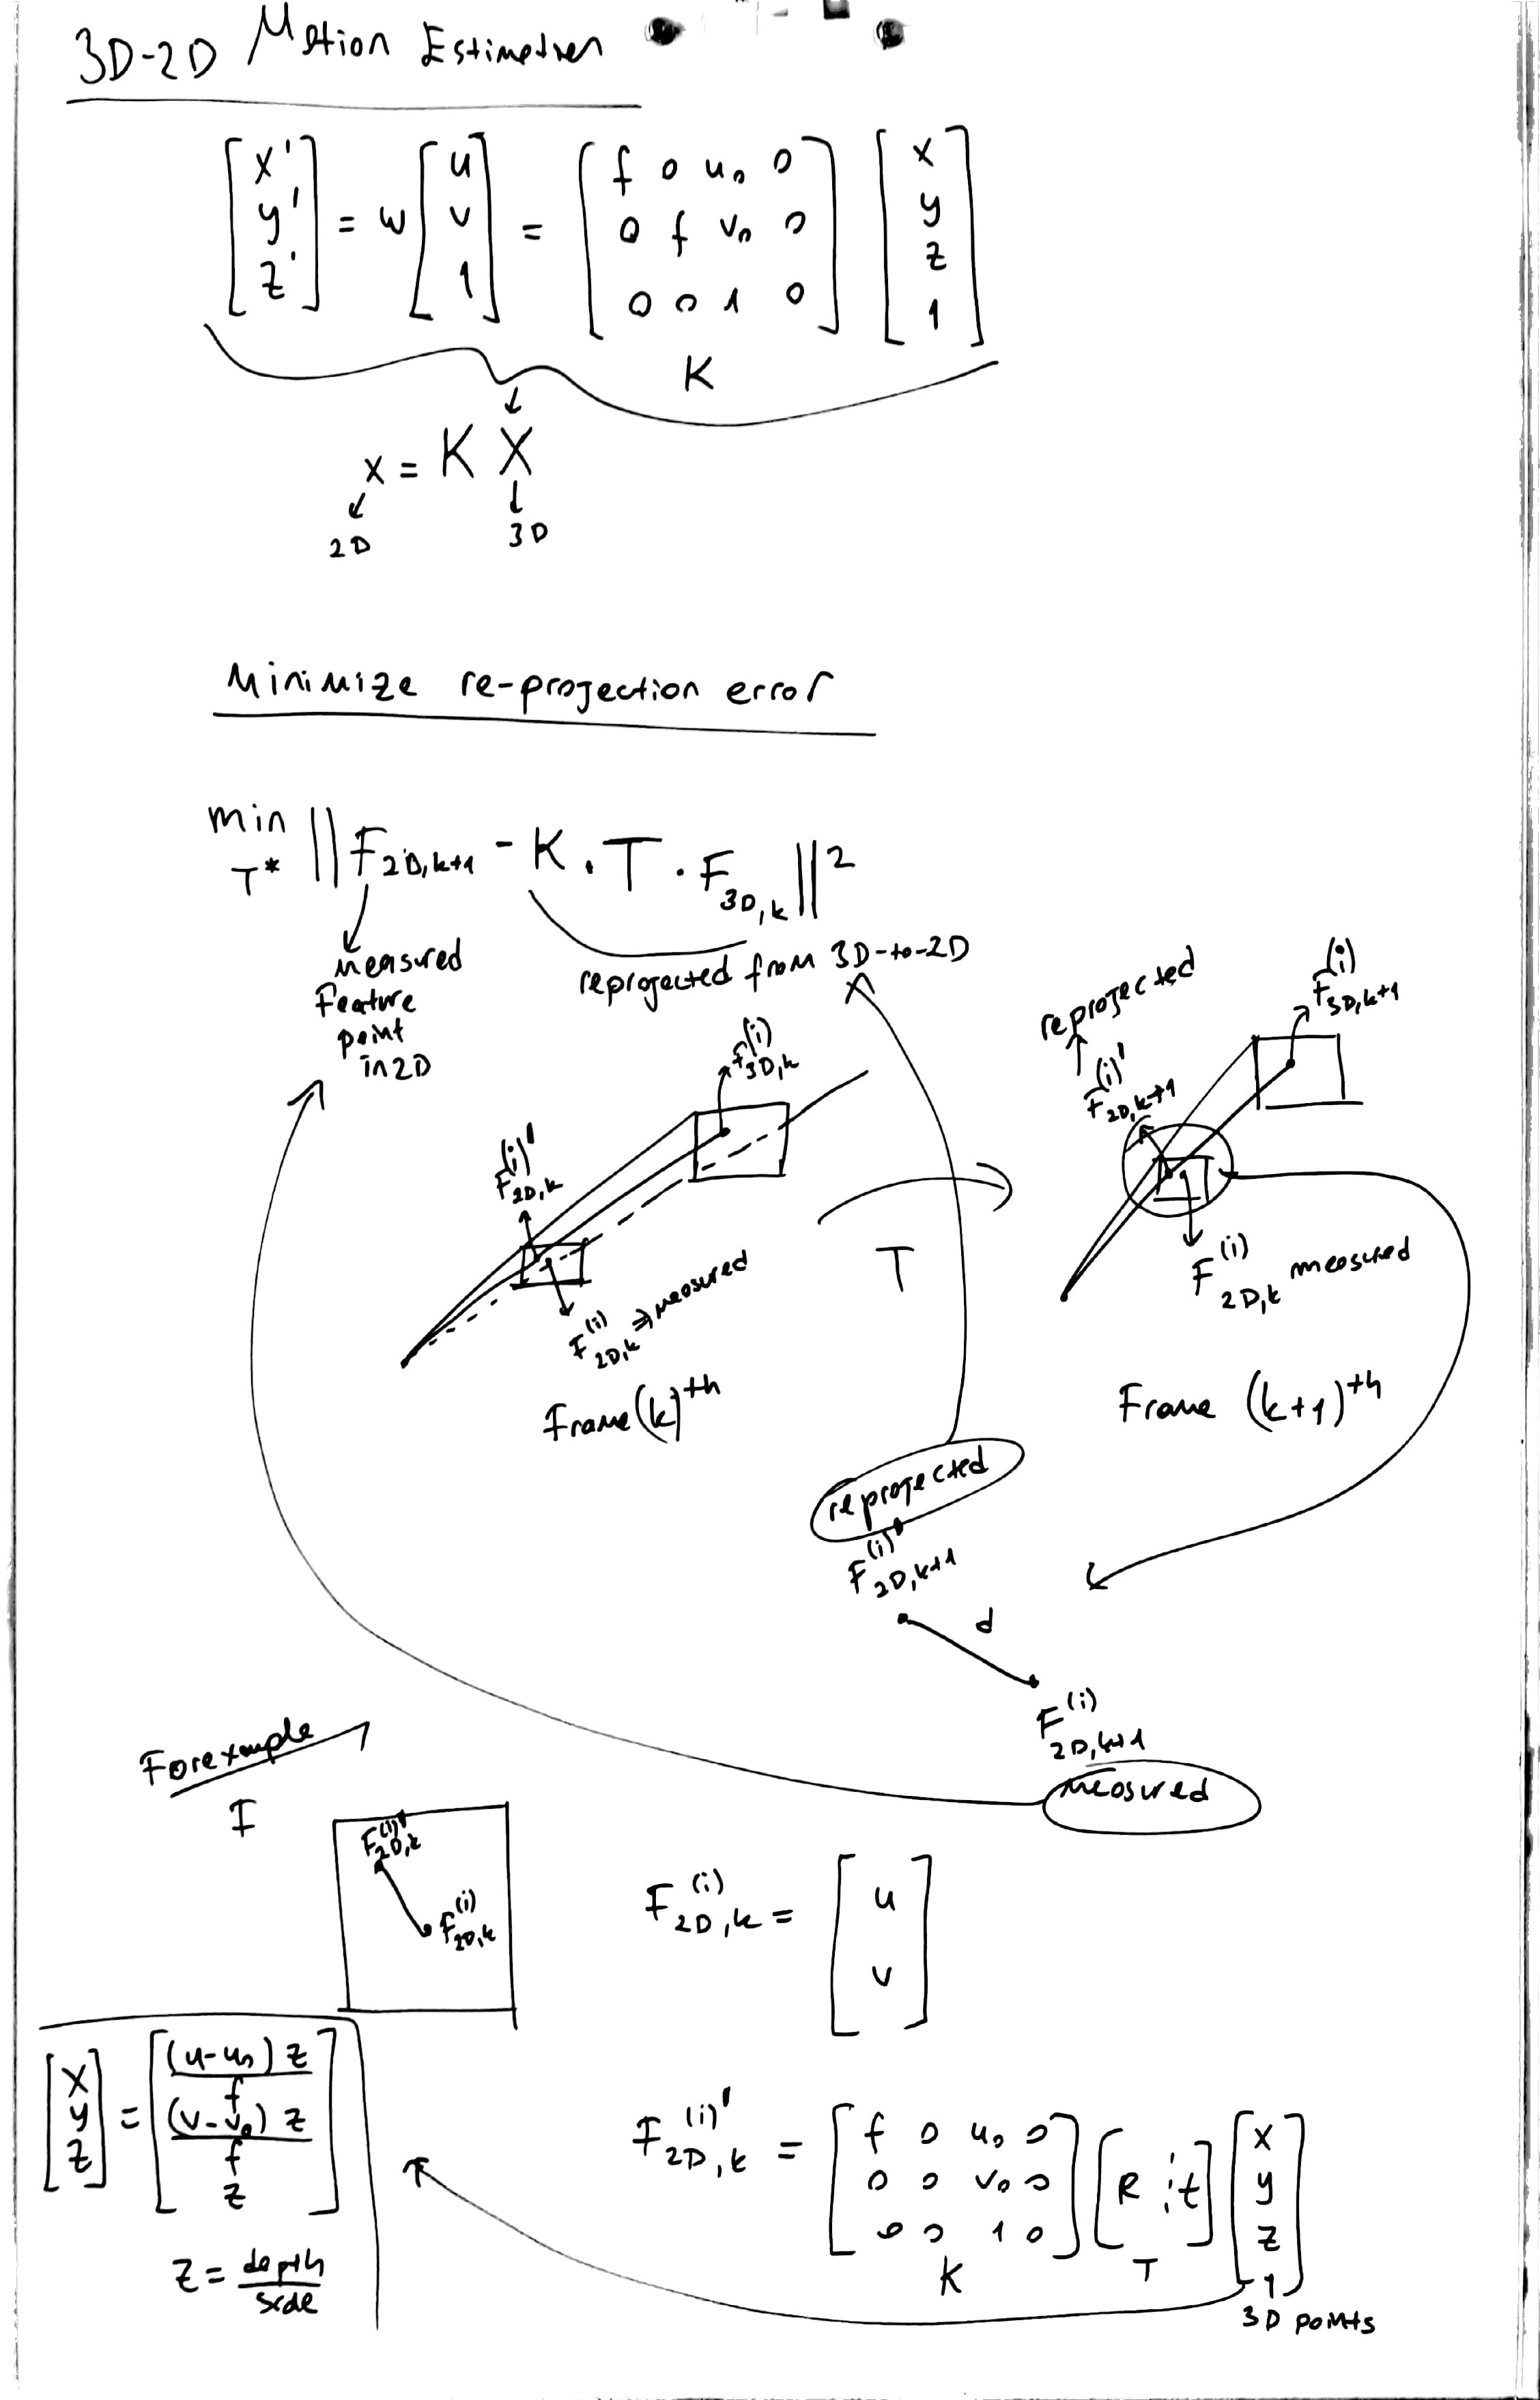 3D-2D Motion Estimation
[x' y' z'] = w [u v 1] = [f 0 u₀ 0; 0 f v₀ 0; 0 0 1 0] [x y z 1]
K
x = K X
2D 3D
Minimize re-projection error
min T* ||F_2D,k+1 - K . T . F_3D,k||²
Measured
feature
point
in 2D
reprojected from 3D-to-2D
F^(i)_3D,k
F^(i)'_2D,k
F^(i)_2D,k ⇒ measured
Frame (k)^th
T
reprojected
F^(i)'_2D,k+1
F^(i)_3D,k+1
F^(i)_2D,k measured
Frame (k+1)^th
reprojected
F^(i)'_2D,k+1
d
F^(i)_2D,k+1
measured
For example
I
F^(i)'_2D,k
F^(i)_2D,k
F^(i)_2D,k = [u v]
[x y z] = [(u-u₀) z / f; (v-v₀) z / f; z]
z = depth / scale
F^(i)'_2D,k = [f 0 u₀ 0; 0 0 v₀ 0; 0 0 1 0] [R ⋮ t] [x y z 1]
K T
3D points